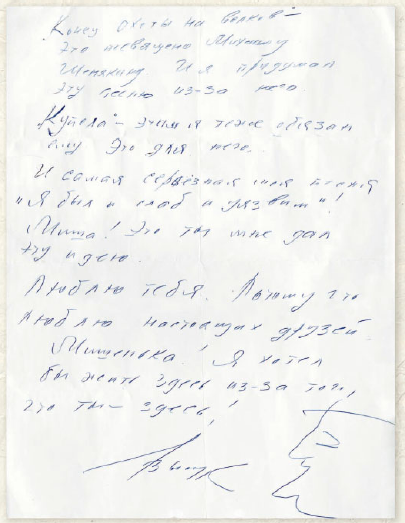 "Конец охоты на волков" –
Это посвящено Михаилу
Шемякину. И я придумал
эту песню из-за него.
"Купола" – этим я тоже обязан
ему. Это для него.
И самая серьёзная моя песня
"Я был и слаб и уязвим"!
Миша! Это ты мне дал
эту идею.
Люблю тебя.
люблю настоящих друзей.
Мишенька! Я хотел
бы жить здесь из-за того,
что ты – здесь!